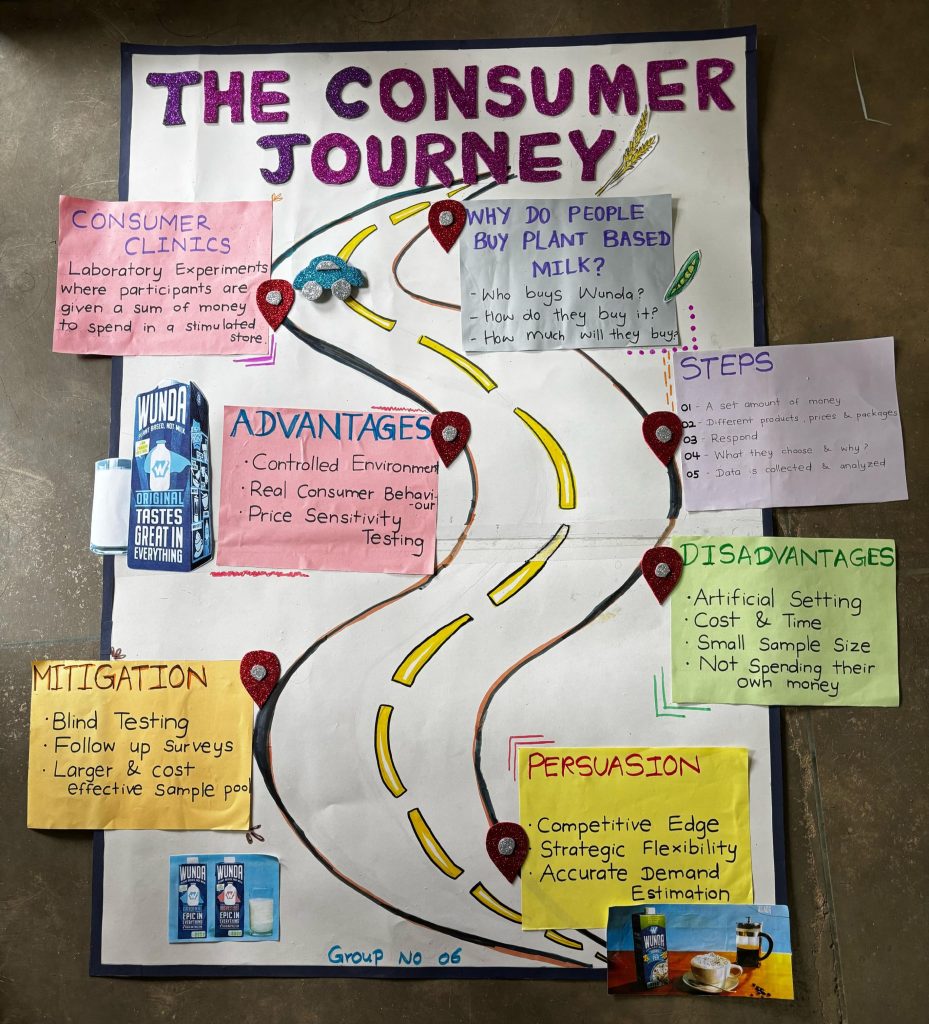 THE CONSUMER
JOURNEY
CONSUMER
CLINICS
Laboratory Experiments
where participants are
given a sum of money
to spend in a stimulated
store.
WHY DO PEOPLE
BUY PLANT BASED
MILK?
- Who buys Wunda?
- How do they buy it?
- How much will they buy?
STEPS
01 - A set amount of money
02 - Different products, prices & packages
03 - Respond
04 - What they choose & why?
05 - Data is collected & analyzed
WUNDA
PLANT BASED, NOT MILK
W
ORIGINAL
TASTES
GREAT IN
EVERYTHING
ADVANTAGES
· Controlled Environment
· Real Consumer Behavi-
-our
· Price Sensitivity
Testing
DISADVANTAGES
· Artificial Setting
· Cost & Time
· Small Sample Size
· Not Spending their
own money
MITIGATION
· Blind Testing
· Follow up Surveys
· Larger & cost
effective sample pool
PERSUASION
· Competitive Edge
· Strategic Flexibility
· Accurate Demand
Estimation
WUNDA
W
EPIC IN
EVERYTHING
WUNDA
W
EPIC IN
EVERYTHING
WUNDA
Group No 06